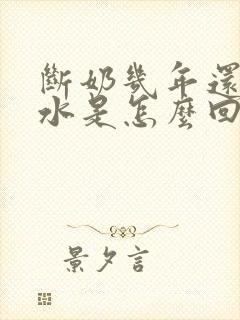 斷奶幾年還
水是怎麼回
景夕言